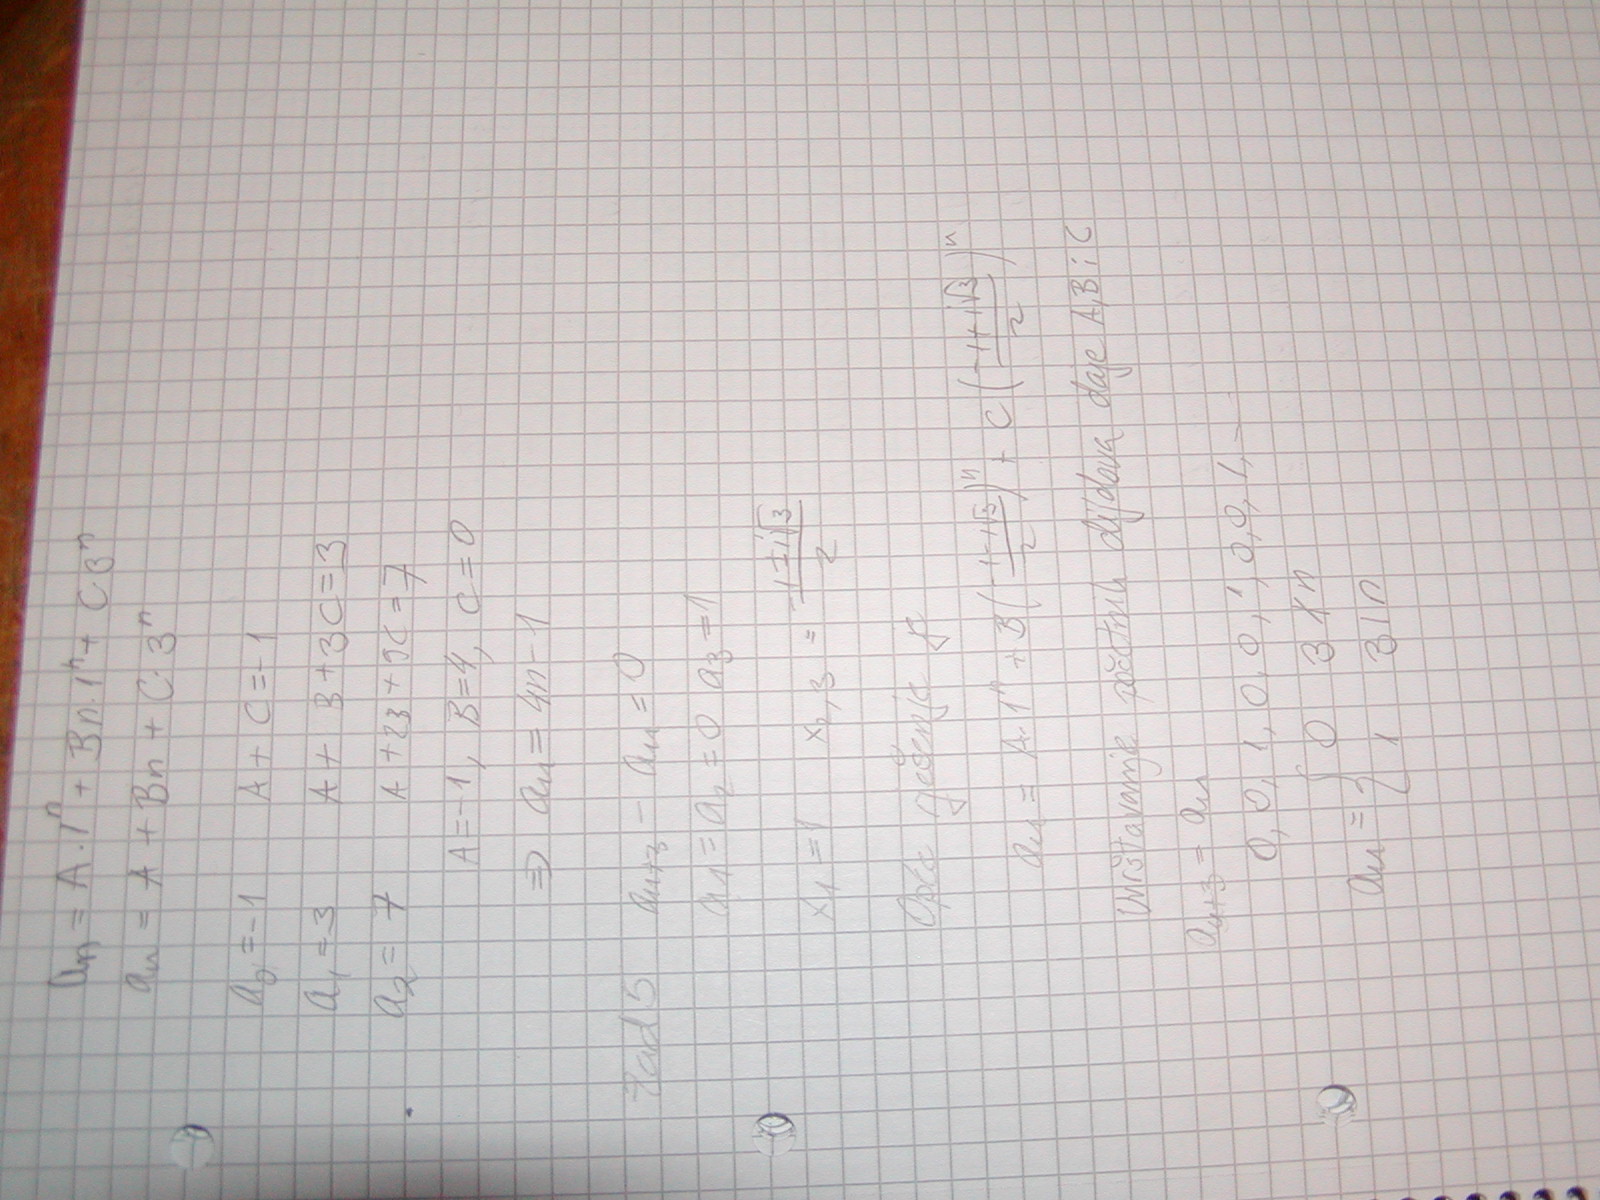 aₙ = A · 1ⁿ + Bn · 1ⁿ + C3ⁿ
aₙ = A + Bn + C · 3ⁿ
a₀ = -1 A + C = -1
a₁ = 3 A + B + 3C = 3
a₂ = 7 A + 2B + 9C = 7
A = -1, B = 4, C = 0
⇒ aₙ = 4n - 1
Zad 5 aₙ₊₃ - aₙ = 0
a₁ = a₂ = 0 a₃ = 1
x₁ = 1 x₂,₃ = (-1 ± i√3)/2
Opće rješenje je
aₙ = A · 1ⁿ + B((-1-i√3)/2)ⁿ + C((-1+i√3)/2)ⁿ
Uvrštavanje početnih daje A, B i C
aₙ₊₃ = aₙ
0, 0, 1, 0, 0, 1, 0, 0, 1, ...
aₙ = { 0 3∤n
1 3|n